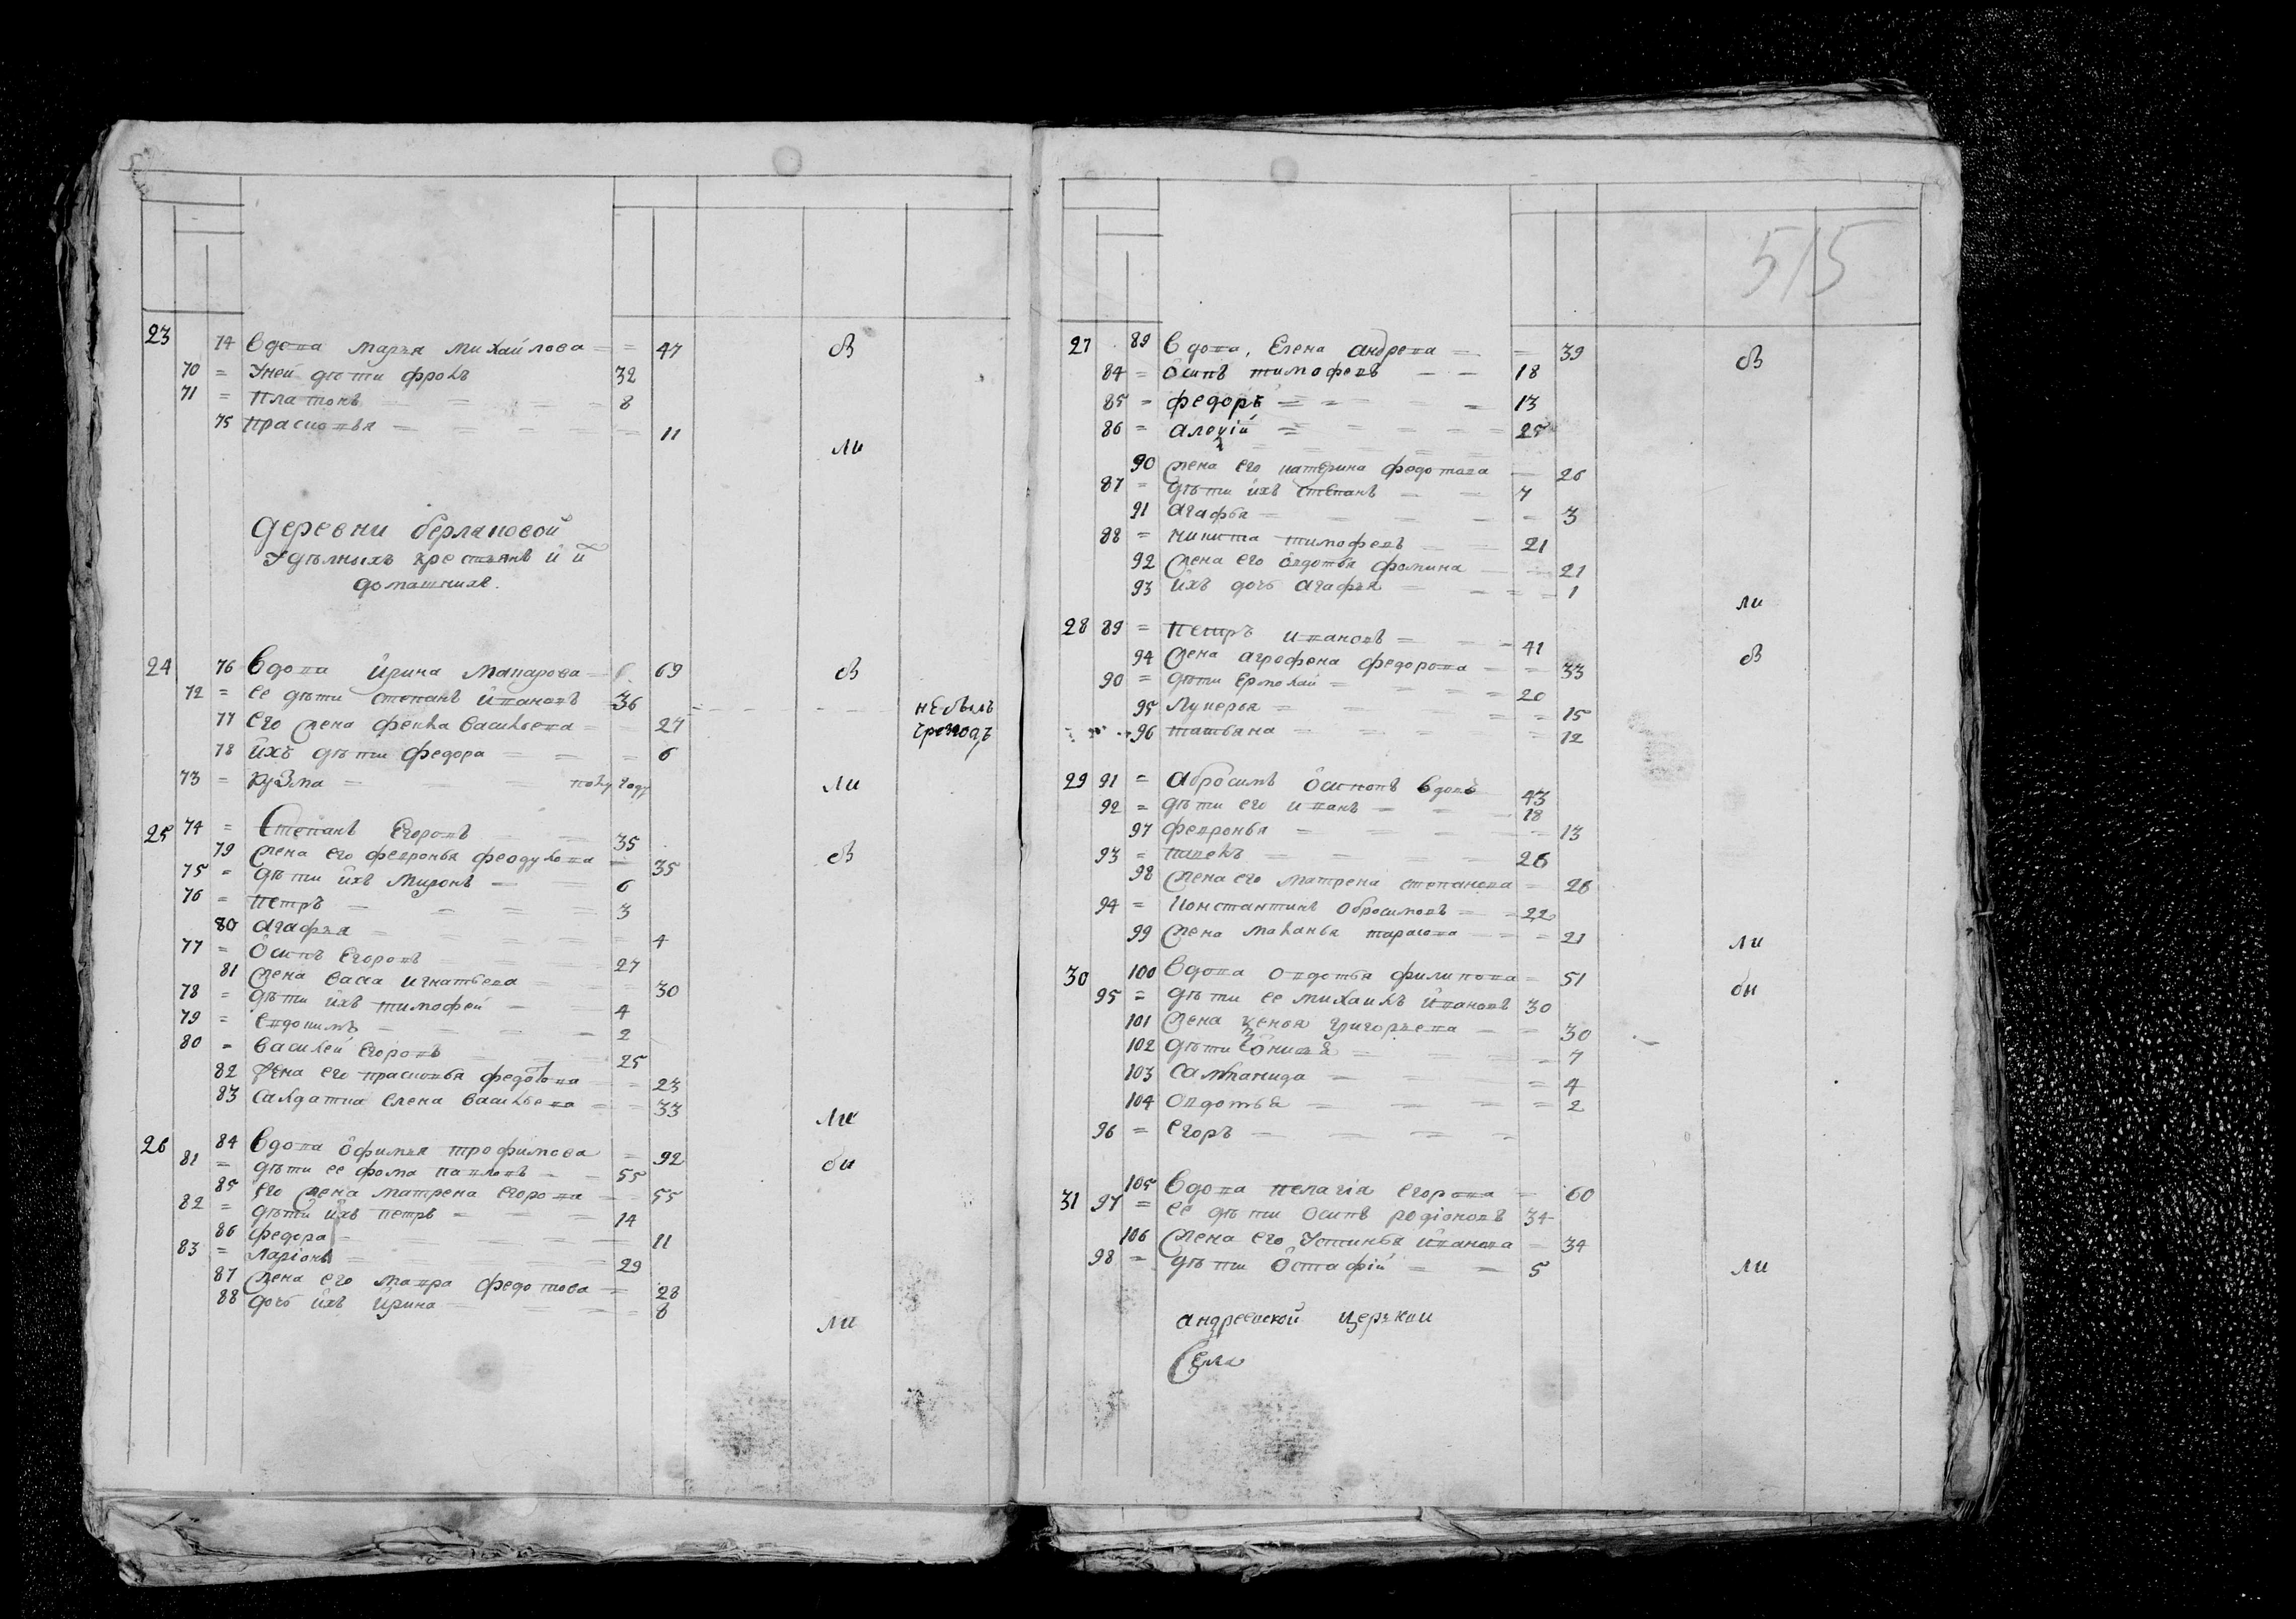 23 74 Вдова марья михайлова = = 47 бы
70 = Уней дѣти фролъ 32
71 = платонъ = = = 8
75 прасковья = = = = 11
ли
деревни берлаковой
Удѣлныхъ крестьянъ й йхъ
домашнихъ.
24 76 Вдова йрина макарова = 69 бы
72 = ее дѣти степанъ йвановъ 36 = небылъ
77 его жена фекла васильева = 27
78 йхъ дѣти федора = = = 6
73 = кузма = = полу году ли
25 74 = Степанъ Егоровъ = 35
79 жена его февронья феодулова = 35 бы
75 = дѣти йхъ миронъ = = 6
76 = петръ = = = = 3
80 агафья = = = = 4
77 = Осипъ Егоровъ = = 27
81 жена васса игнатьева = = 30
78 = дѣти йхъ тимофей = 4
79 = евдокимъ = = = 2
80 = василей егоровъ 25
82 жена его прасковья федотова = 23
83 салдатка елена васильева = 33
ли
26 84 Вдова офимья трофимова = 92
81 = дѣти ее фома павловъ = 55 бы
85 его жена матрена егорова = 55
82 = дѣти йхъ петръ = = = 14
86 федора = = = = 11
83 = ларіонъ = = = 29
87 жена его мавра федотова = 28
88 дочь йхъ йрина = = = 8
ли
515
27 89 Вдова, елена андрева = = 39 бы
84 = Осипъ тимофевъ = = 18
85 = федоръ = = = 13
86 = алеѯій = = = = 25
90 жена его катерина федотова = 26
87 = дѣти йхъ степанъ = = 7
91 агафья = = = = 3
88 = никита тимофевъ = = 21
92 жена его овдотья фомина = 21
93 йхъ дочь агафья = = = 1
ли
28 89 = петръ ивановъ = = = 41
94 жена агрофена федорова = = 33 бы
90 = дѣти ермолай = = = 20
95 лукерья = = = = 15
96 татьяна = = = = 12
29 91 = абросимъ осиповъ вдовъ 43
92 = дѣти его иванъ = = 18
97 февронья = = = = 13
93 = павелъ = = = 26
98 жена его матрена степанова = 26
94 = Константинъ обросимовъ = 22
99 жена маланья тарасова = = 21 ли
30 100 Вдова овдотья филипова = 51
95 = дѣти ее михаилъ йвановъ 30 бы
101 жена ѯенья григорьева = = 30
102 дѣти = = 7
103 саломанида = = 4
104 овдотья = = = 2
96 = егоръ = = = =
105 Вдова пелагія егорова = 60
31 97 = ее дѣти осипъ родіоновъ 34
106 жена его Устинья йванова = 34
98 = дѣти Остафій = = 5 ли
андреевской церькви
Села